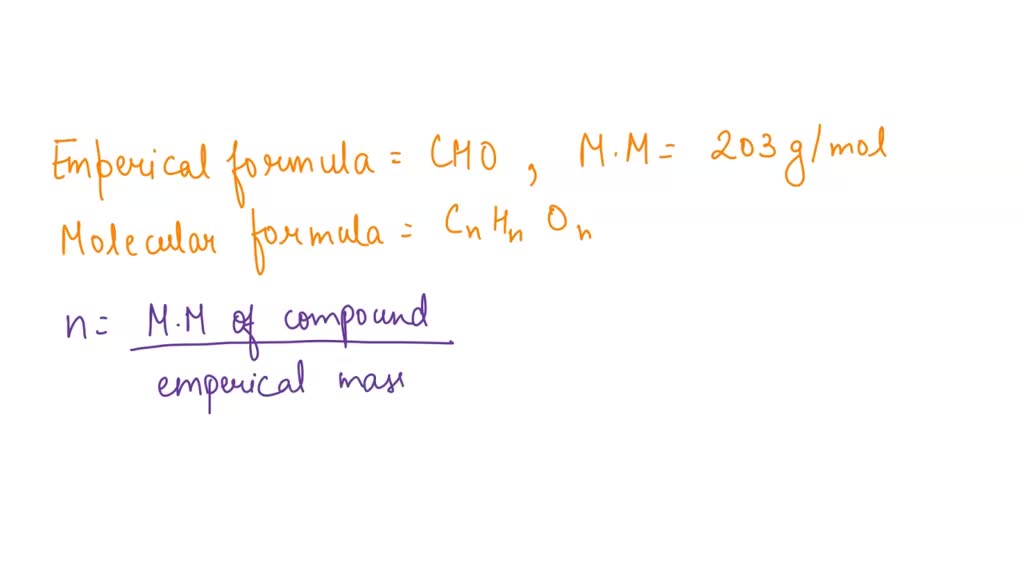 Emperical formula = CHO , M.M = 203 g/mol
Molecular formula = CnHnOn
n = M.M of compound
emperical mass